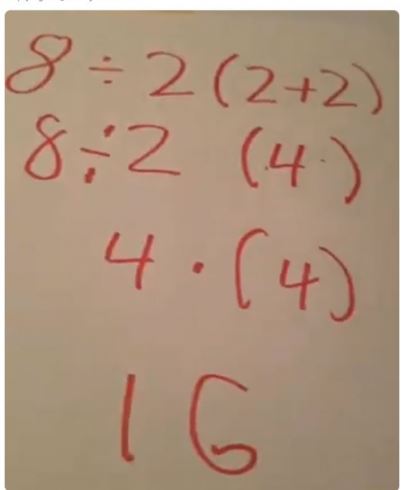 8 ÷ 2 (2+2)
8 ÷ 2 (4)
4 · (4)
16